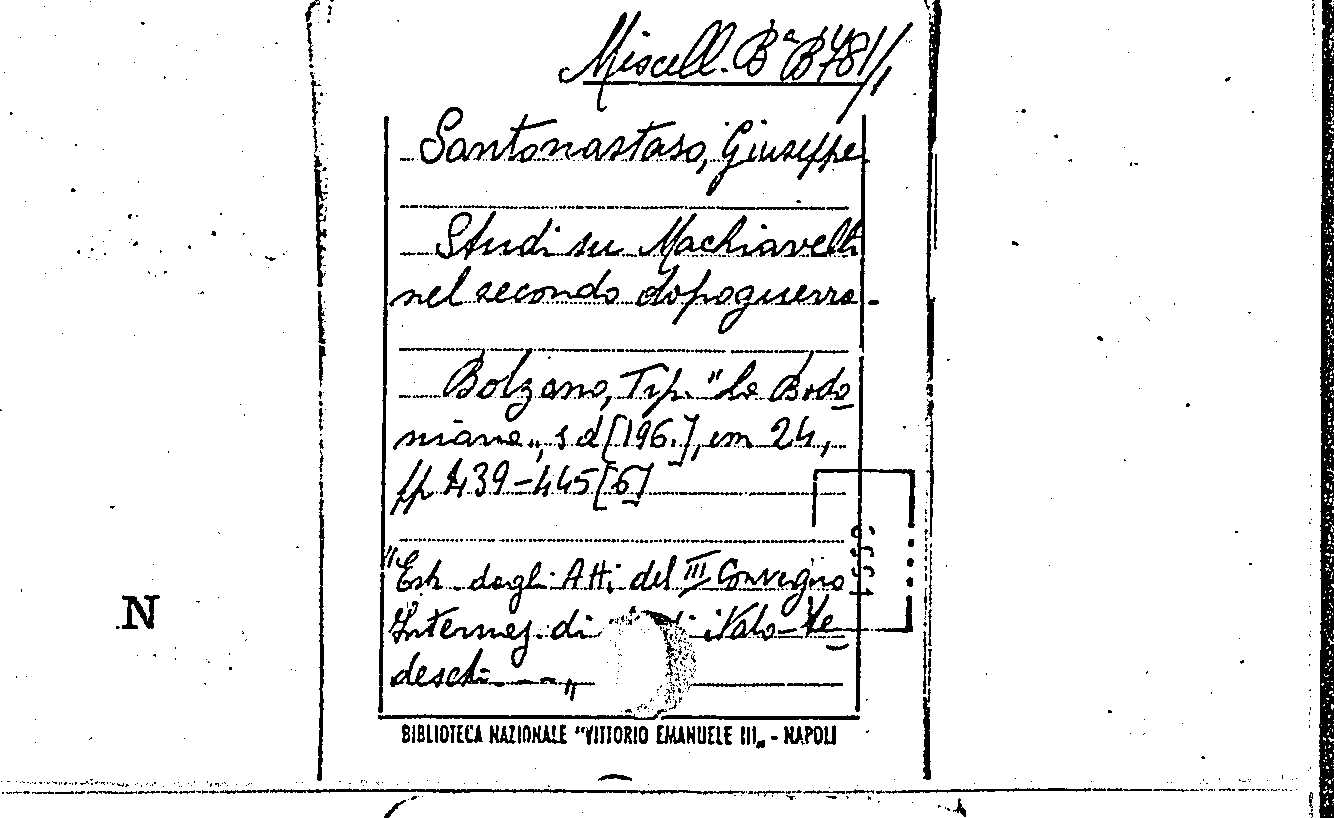 Miscell. Bª B781/1
Santonastaso, Giuseppe
Studi su Machiavelli
nel secondo dopoguerra.
Bolzano, Tip. "La Bodo
niana", s d [196.], cm 24,
pp 439-445 [6]
"Estr. dagli Atti del III Convegno
Internaz. di italo-te
deschi - - - "
N
BIBLIOTECA NAZIONALE "VITTORIO EMANUELE III" - NAPOLI